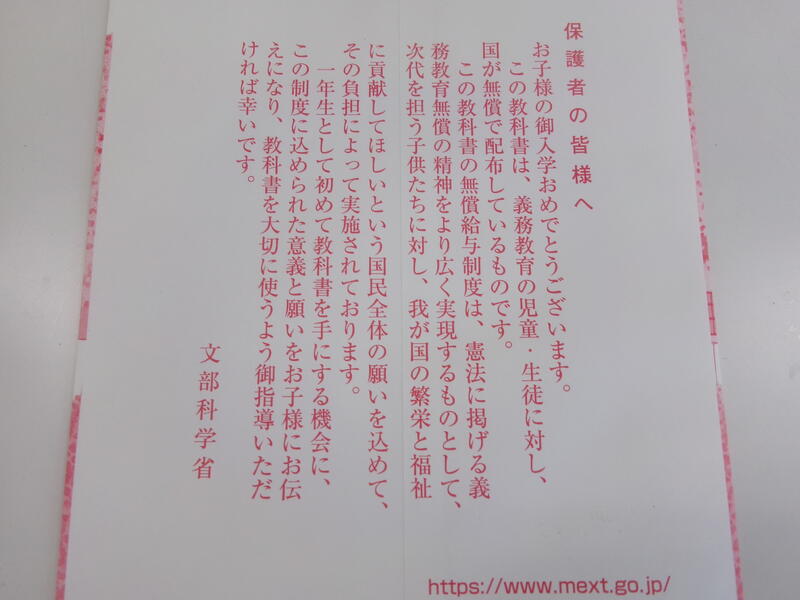 保護者の皆様へ
お子様の御入学おめでとうございます。
この教科書は、義務教育の児童・生徒に対し、
国が無償で配布しているものです。
この教科書の無償給与制度は、憲法に掲げる義
務教育無償の精神をより広く実現するものとして、
次代を担う子供たちに対し、我が国の繁栄と福祉
に貢献してほしいという国民全体の願いを込めて、
その負担によって実施されております。
一年生として初めて教科書を手にする機会に、
この制度に込められた意義と願いをお子様にお伝
えになり、教科書を大切に使うよう御指導いただ
ければ幸いです。
文部科学省
https://www.mext.go.jp/